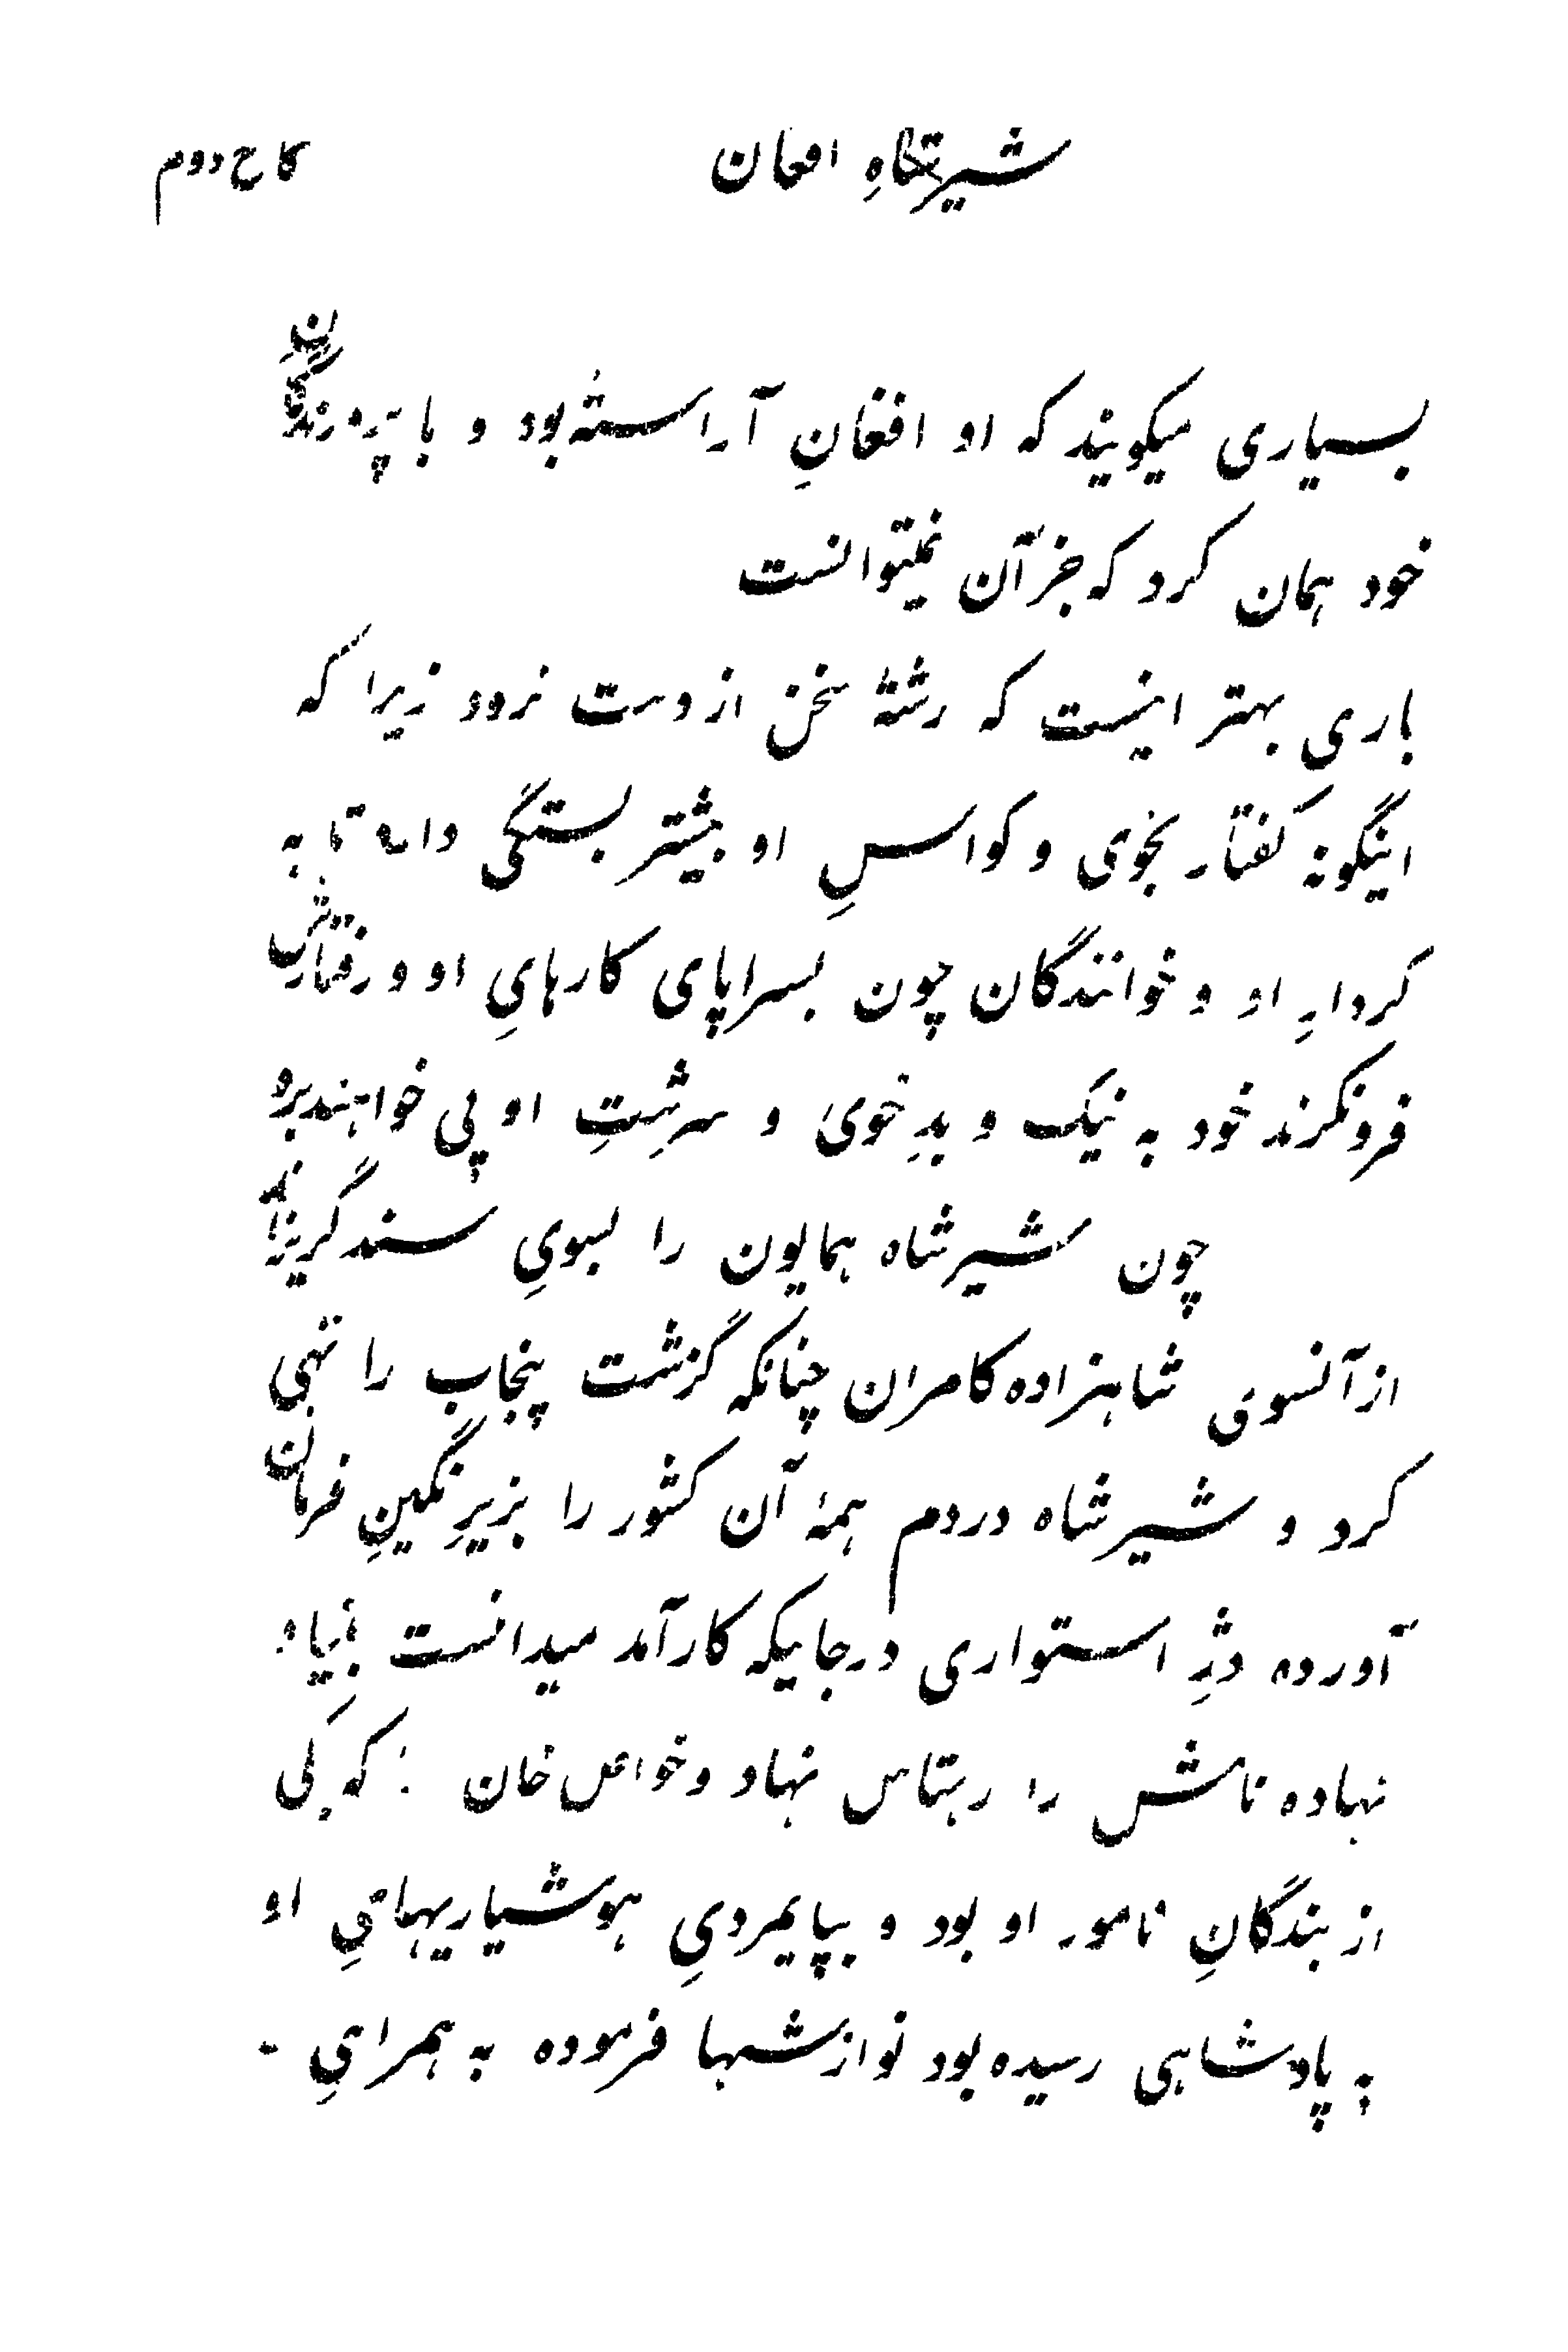 شیرشاهِ افغان کاخ دوم
بسیاری میگویند که او افغانِ آراستهٔ بود و با پروردگانِ
خود همان کرد که جز آن نمیتوانست
باری بهتر اینست که رشتهٔ سخن از دست نرود زیرا که
اینگونه گفتار بخوی و کواسِ او بیشتر بستگی دارد تا به
کردارِ او و خوانندگان چون بسراپای کارهایِ او و رفتارش
فرونگرند خود به نیک و بدِ خوی و سرشتِ او پی خواهند برد
چون شیرشاه همایون را بسویِ سند گریزاند
از آنسوی شاهزاده کامران چنانکه گزشت پنجاب را تهی
کرد و شیرشاه در دم همهٔ آن کشور را بزیرِ نگینِ فرمان
آورده دژِ استواری در جاییکه کارآمد میدانست بنیاد
نهاده نامش را رهتاس نهاد و خواص خان را که یکی
از بندگانِ نامور او بود و بپایمردیِ هوشیاریهایِ او
به پادشاهی رسیده بود نوازشها فرموده به همراهیِ